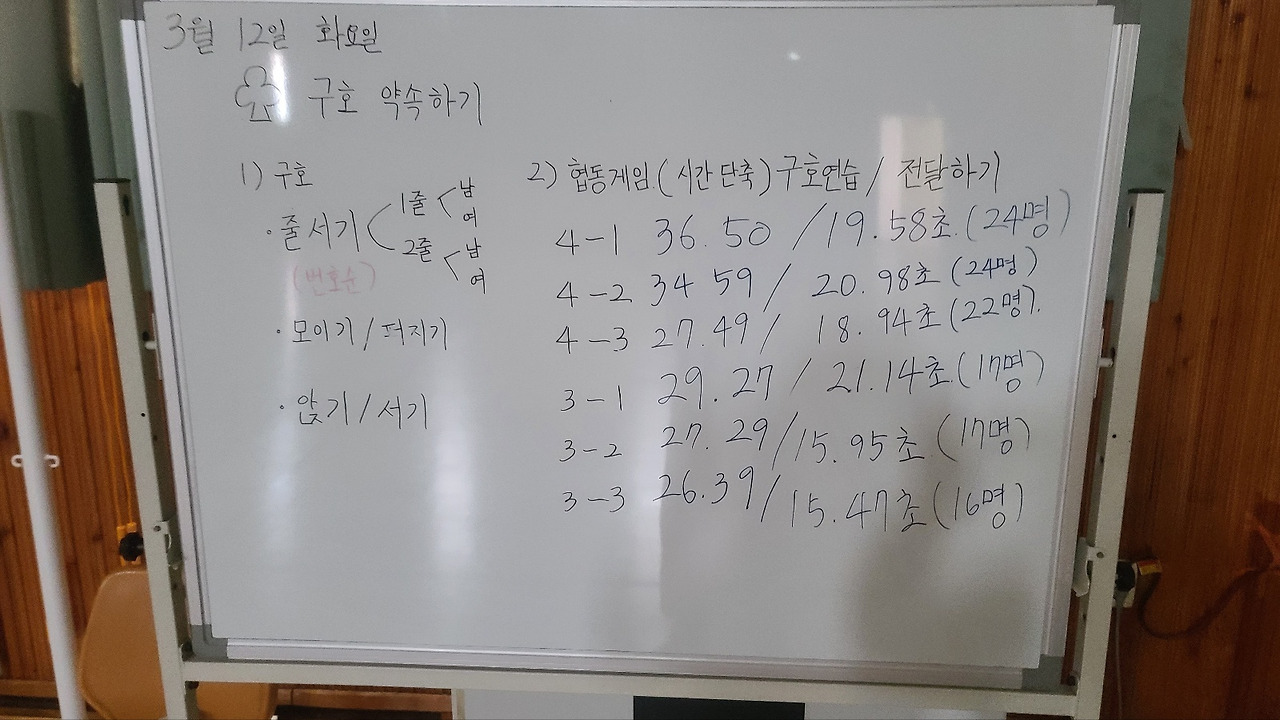 3월 12일 화요일
구호 약속하기
1) 구호
· 줄서기 < 1줄 < 남 여
2줄 < 남 여
(번호순)
· 모이기 / 퍼지기
· 앉기 / 서기
2) 협동게임 (시간 단축) 구호연습 / 전달하기
4-1 36.50 / 19.58초 (24명)
4-2 34 59 / 20.98초 (24명)
4-3 27.49 / 18.94초 (22명).
3-1 29.27 / 21.14초 (17명)
3-2 27.29 / 15.95초 (17명)
3-3 26.39 / 15.47초 (16명)